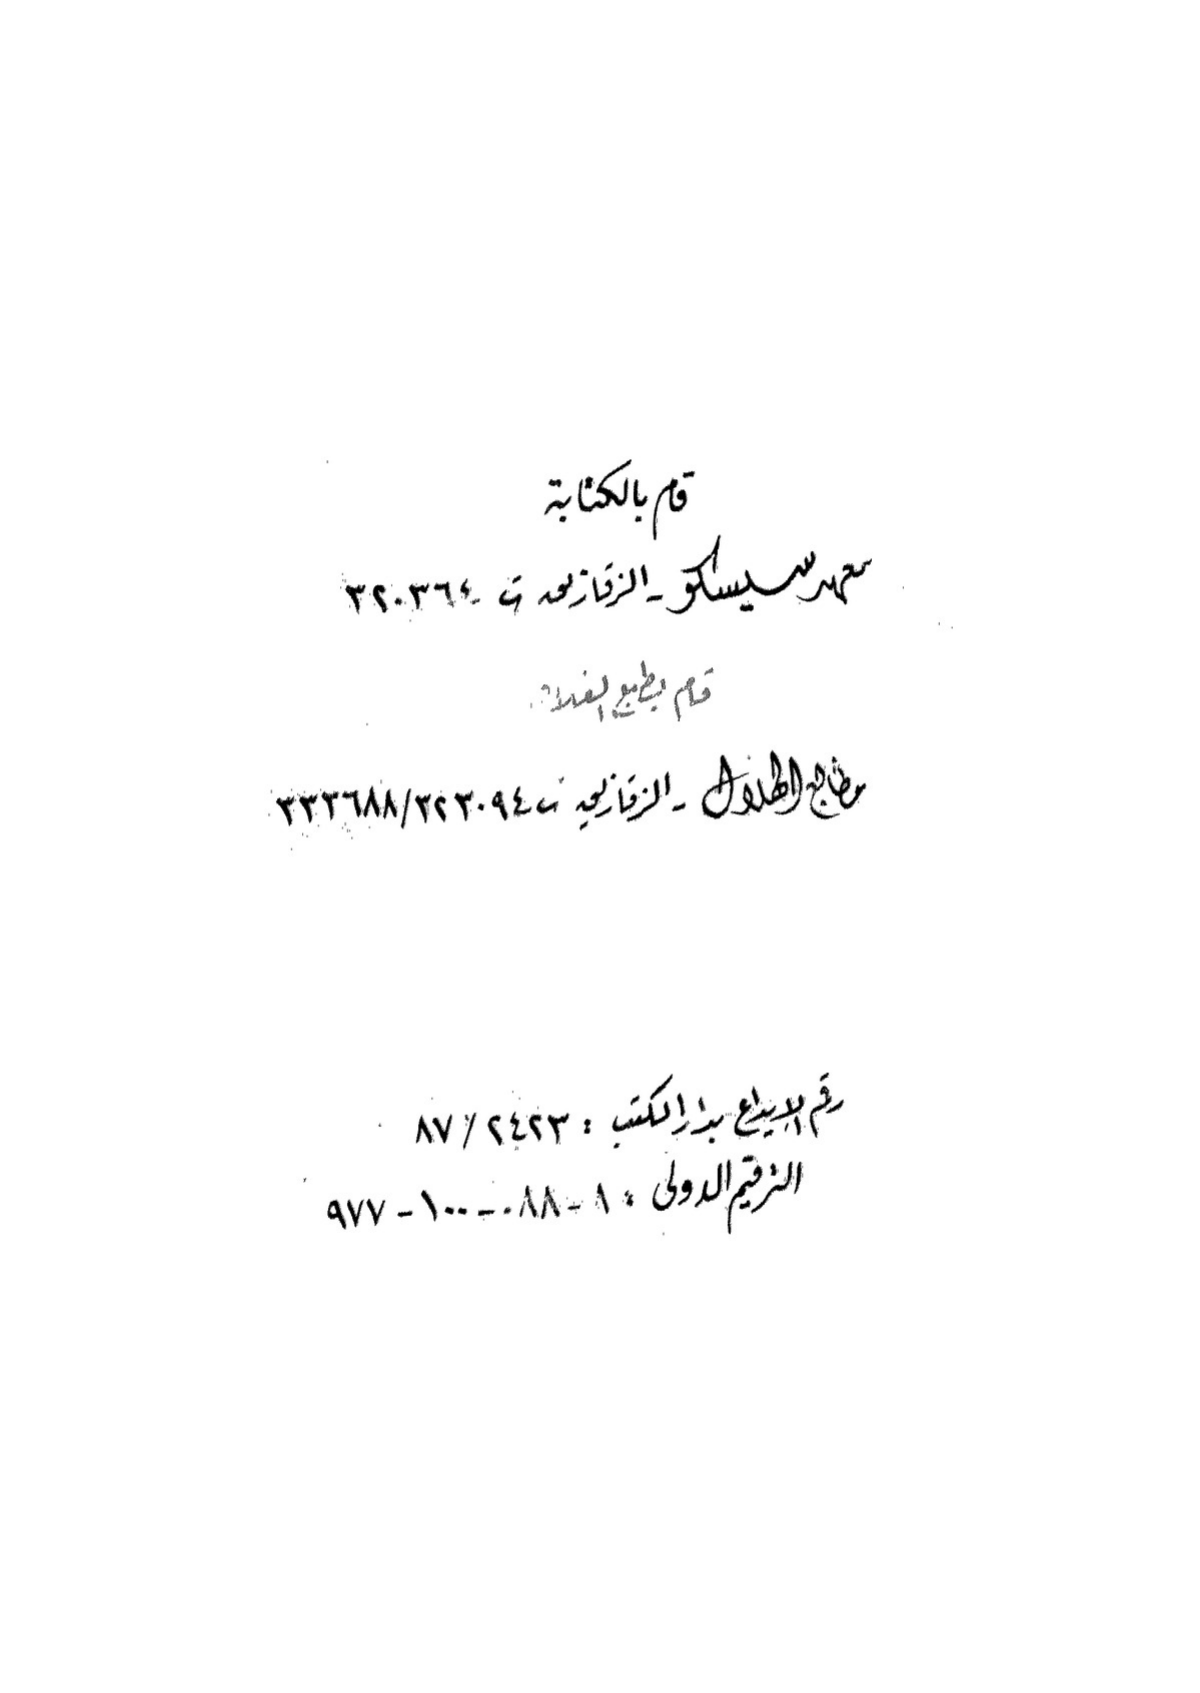 قام بالكتابة
معهد سيسكو - الزقازيق ت ٣٢٠٣٦٤
قام بطبع الغلاف
مطابع الهلال - الزقازيق ت ٣٢٣٠٩٤/٣٣٣٦٨٨
رقم الإيداع بدار الكتب : ٢٤٢٣ / ٨٧
الترقيم الدولى : ٨ - ٠٨٨ - ١٠٠ - ٩٧٧